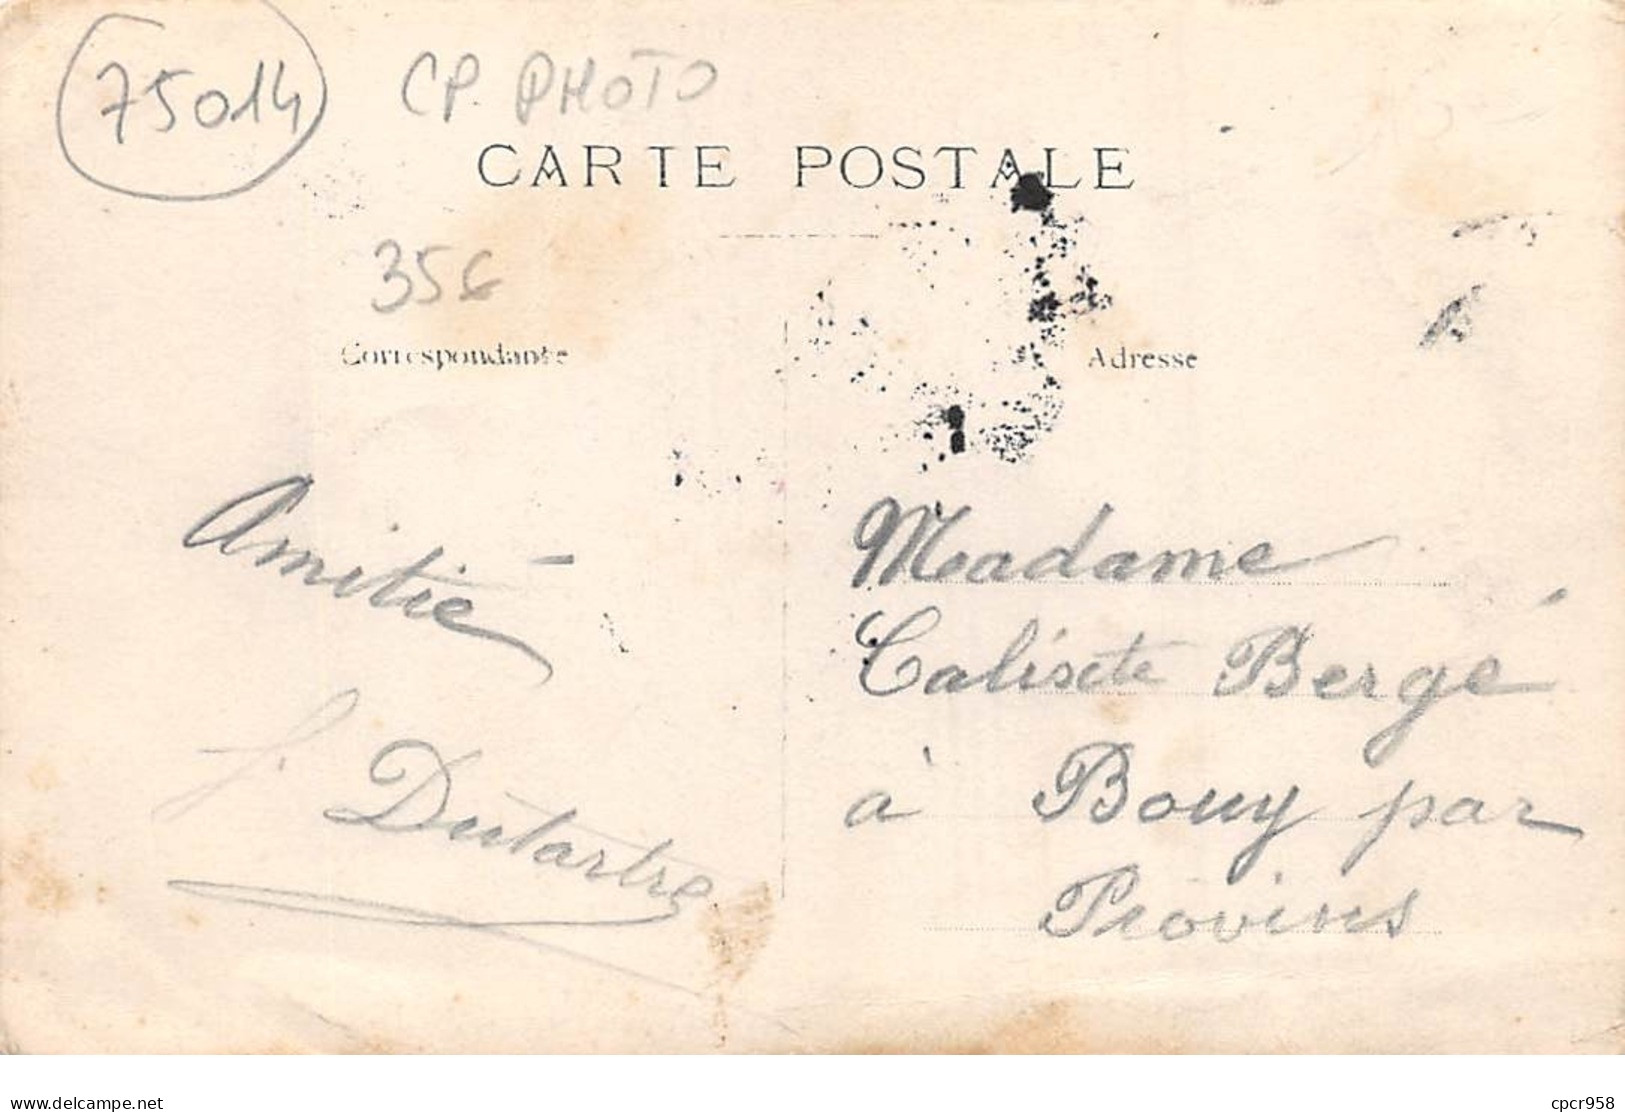 75014
CP. PHOTO
CARTE POSTALE
35€
Correspondante
Adresse
Amitié
Madame
Calixte Bergé
à Bouy par
Provins
Dutartre
delcampe.net
cpcr958